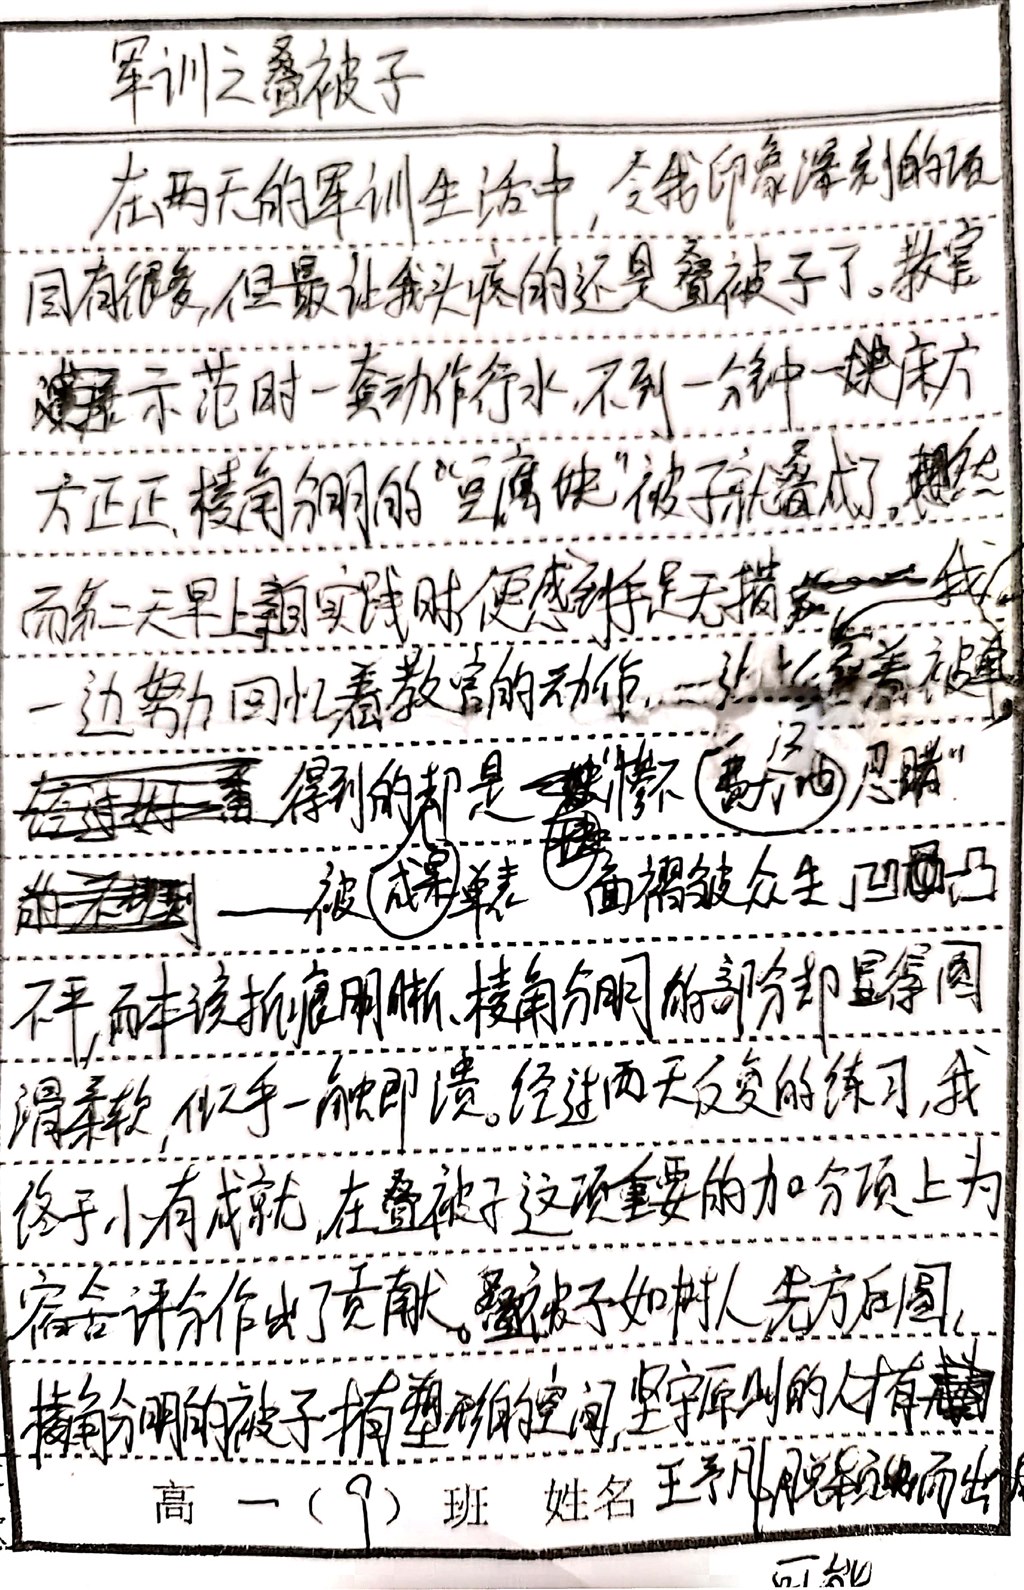 军训之叠被子
在两天的军训生活中,令我印象深刻的项
目有很多,但最让我头疼的还是叠被子了。教官
示范时一套动作行水,不到一分钟一块床方
方正正、棱角分明的“豆腐块”被子就叠成了。
而第二天早上亲自实践时,便感到手足无措 我
一边努力回忆着教官的动作,一边 着被单,
得到的却是 “惨不 忍睹”
——被 成果 单表 面褶皱众生,凹凸
不平,而本该折痕明晰、棱角分明的部分却显得圆
滑柔软,似乎一触即溃。经过两天反复的练习,我
终于小有成就,在叠被子这项重要的加分项上为
宿舍评分作出了贡献。叠被子如树人,先方后圆,
棱角分明的被子才有塑形的空间,坚守原则的人才有
高 一 ( 9 ) 班 姓名 王予凡 脱颖而出的
可能